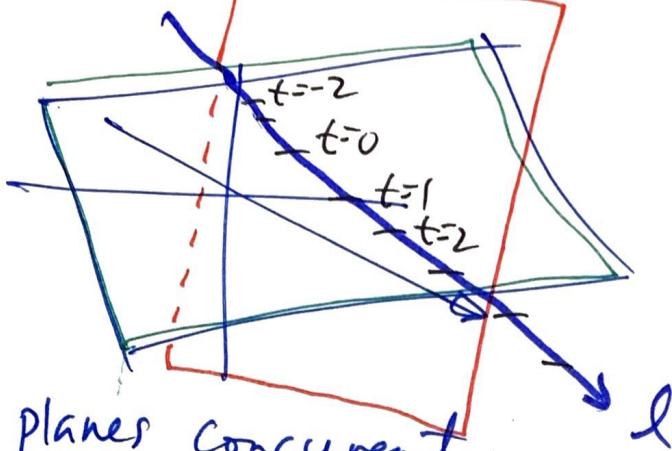 t=-2
t=0
t=1
t=2
l
planes concurrent